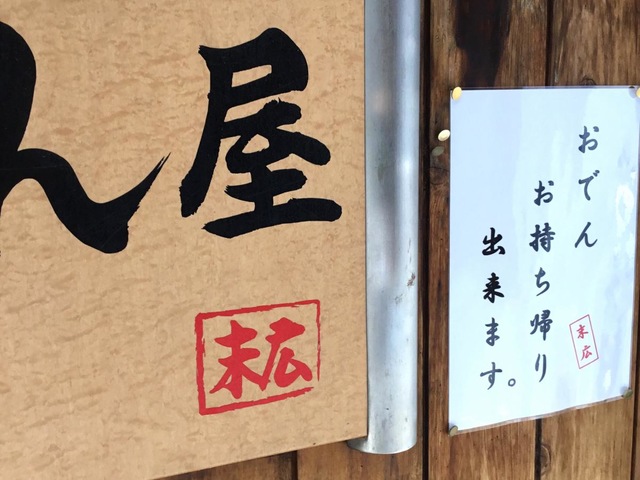 ん屋
末広
おでん
お持ち帰り
出来ます。
末広